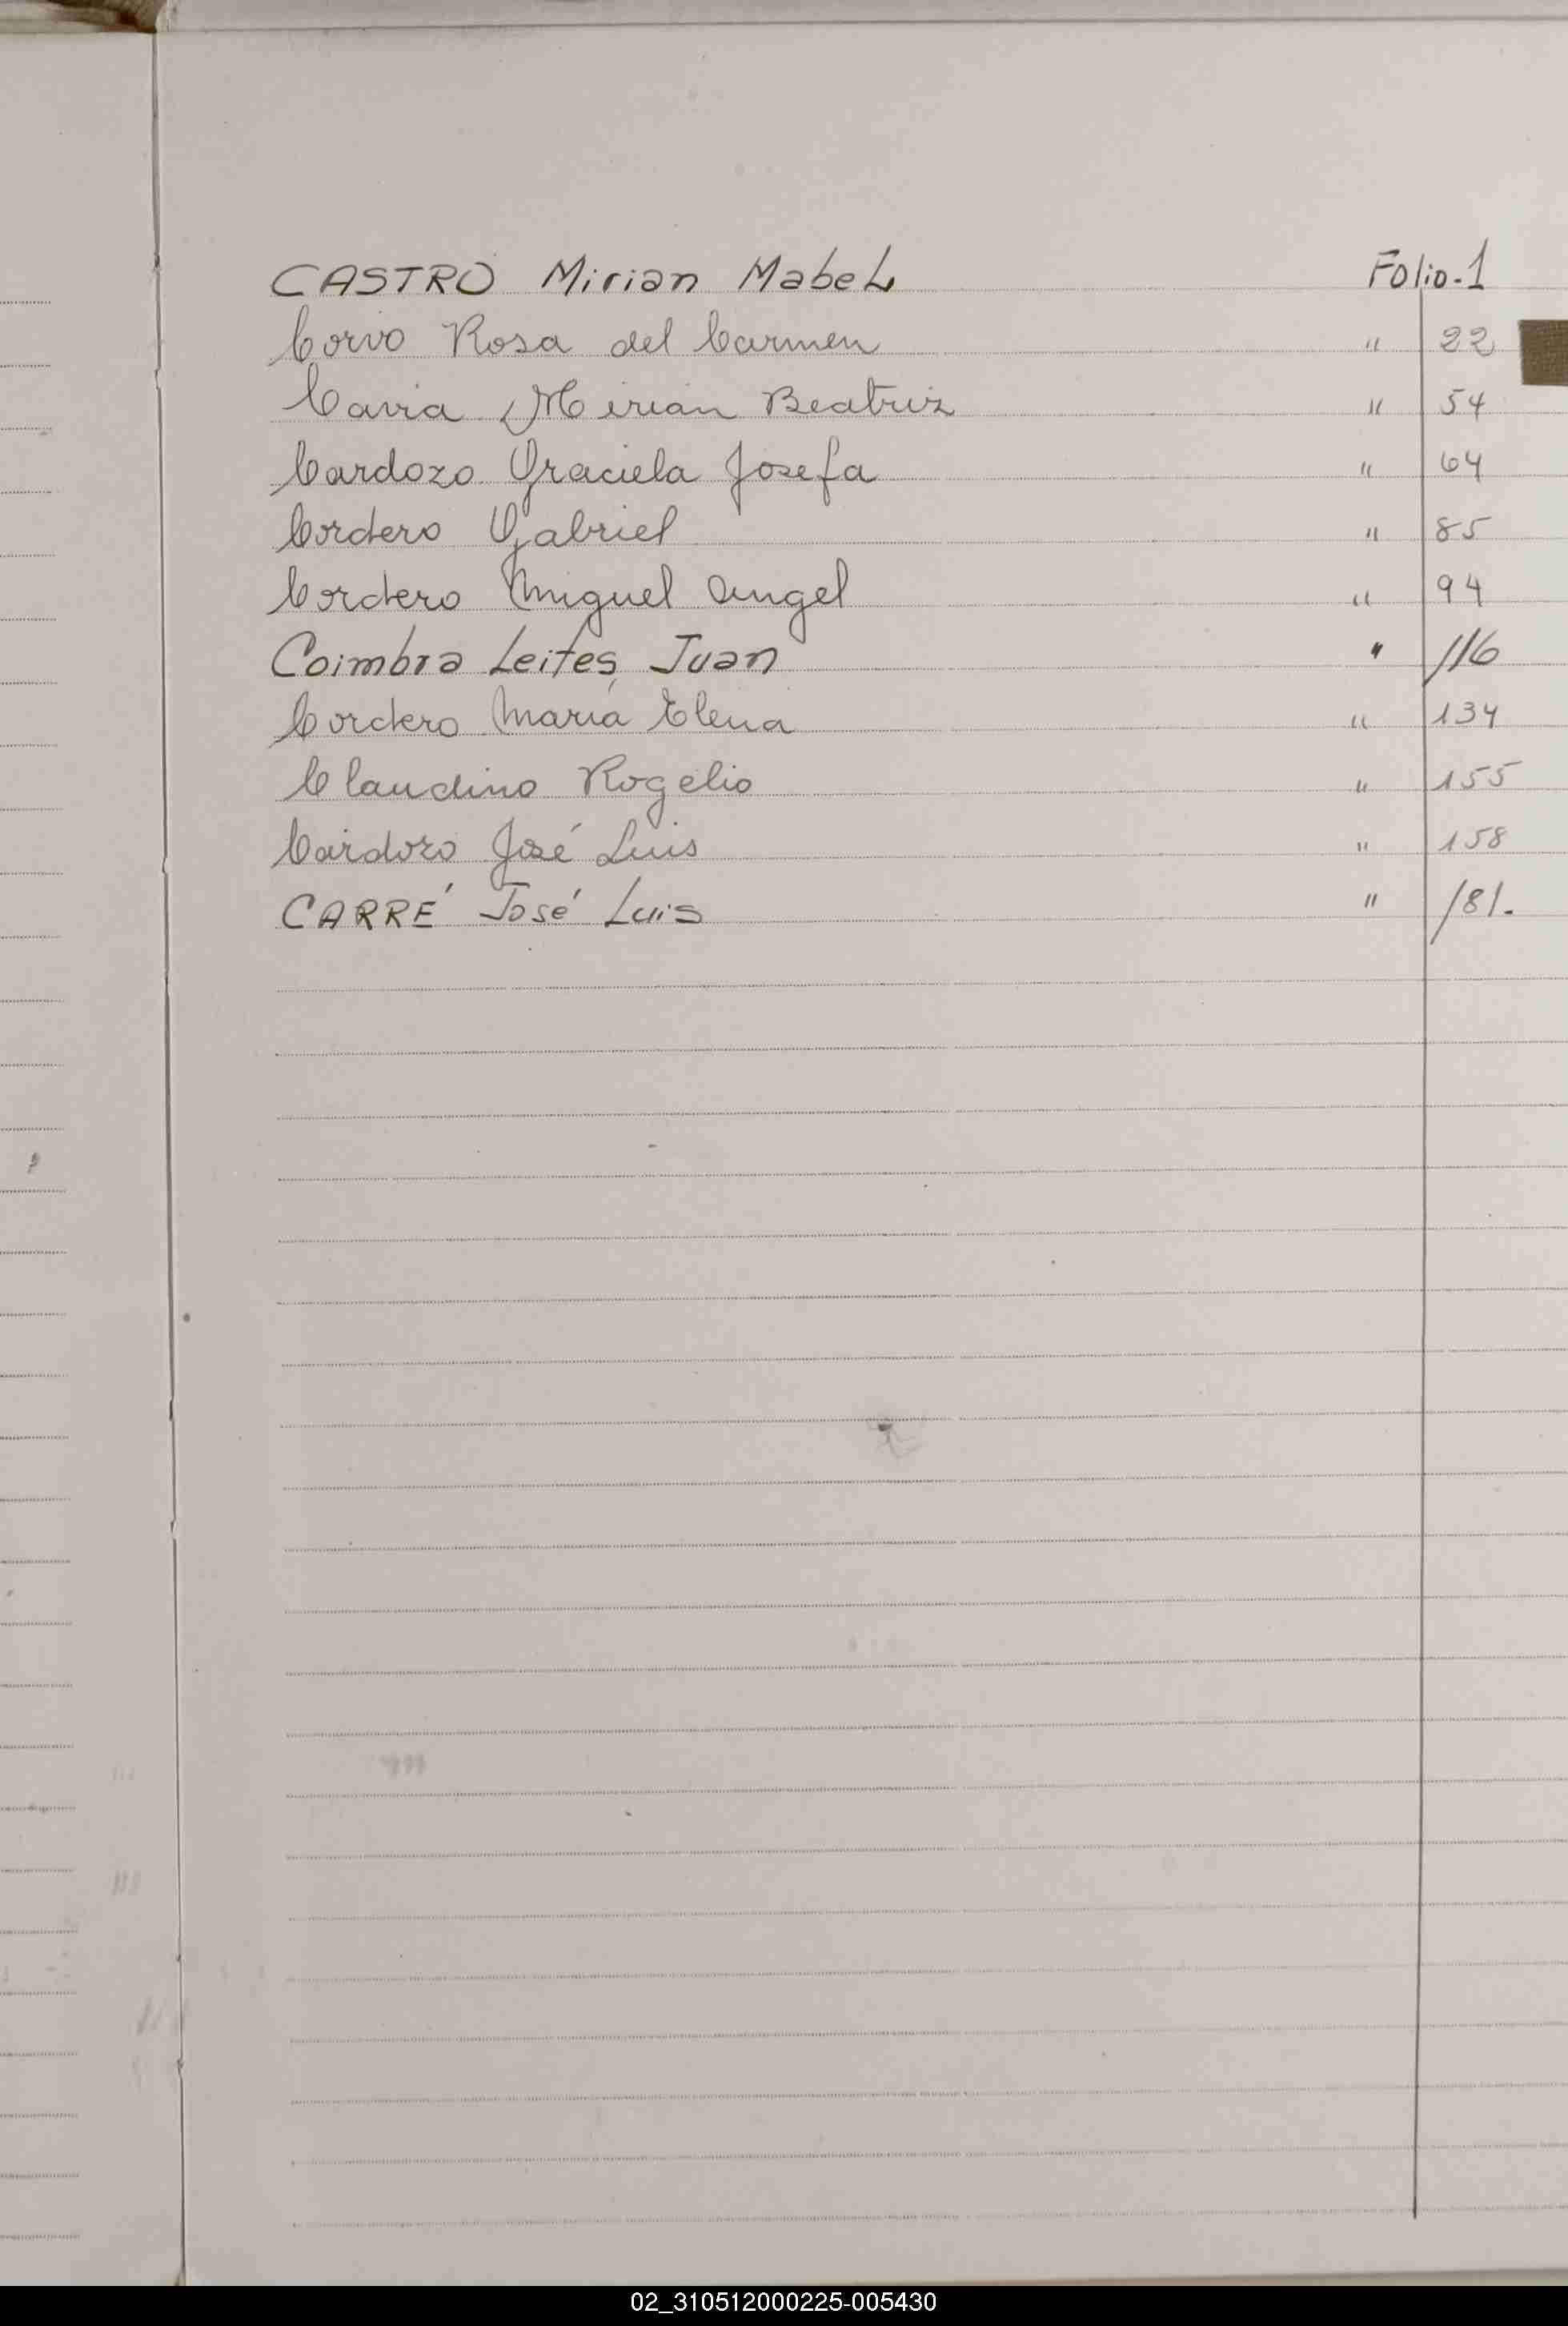 CASTRO Mirian Mabel Folio-1
Corvo Rosa del Carmen " 22
Cavia Mirian Beatriz " 54
Cardozo Graciela Josefa " 64
Cordero Gabriel " 85
Cordero Miguel Angel " 94
Coimbra Leites, Juan " 116
Cordero María Elena " 134
Claudino Rogelio " 155
Cardozo José Luis " 158
CARRÉ José Luis " 181.
02_310512000225-005430